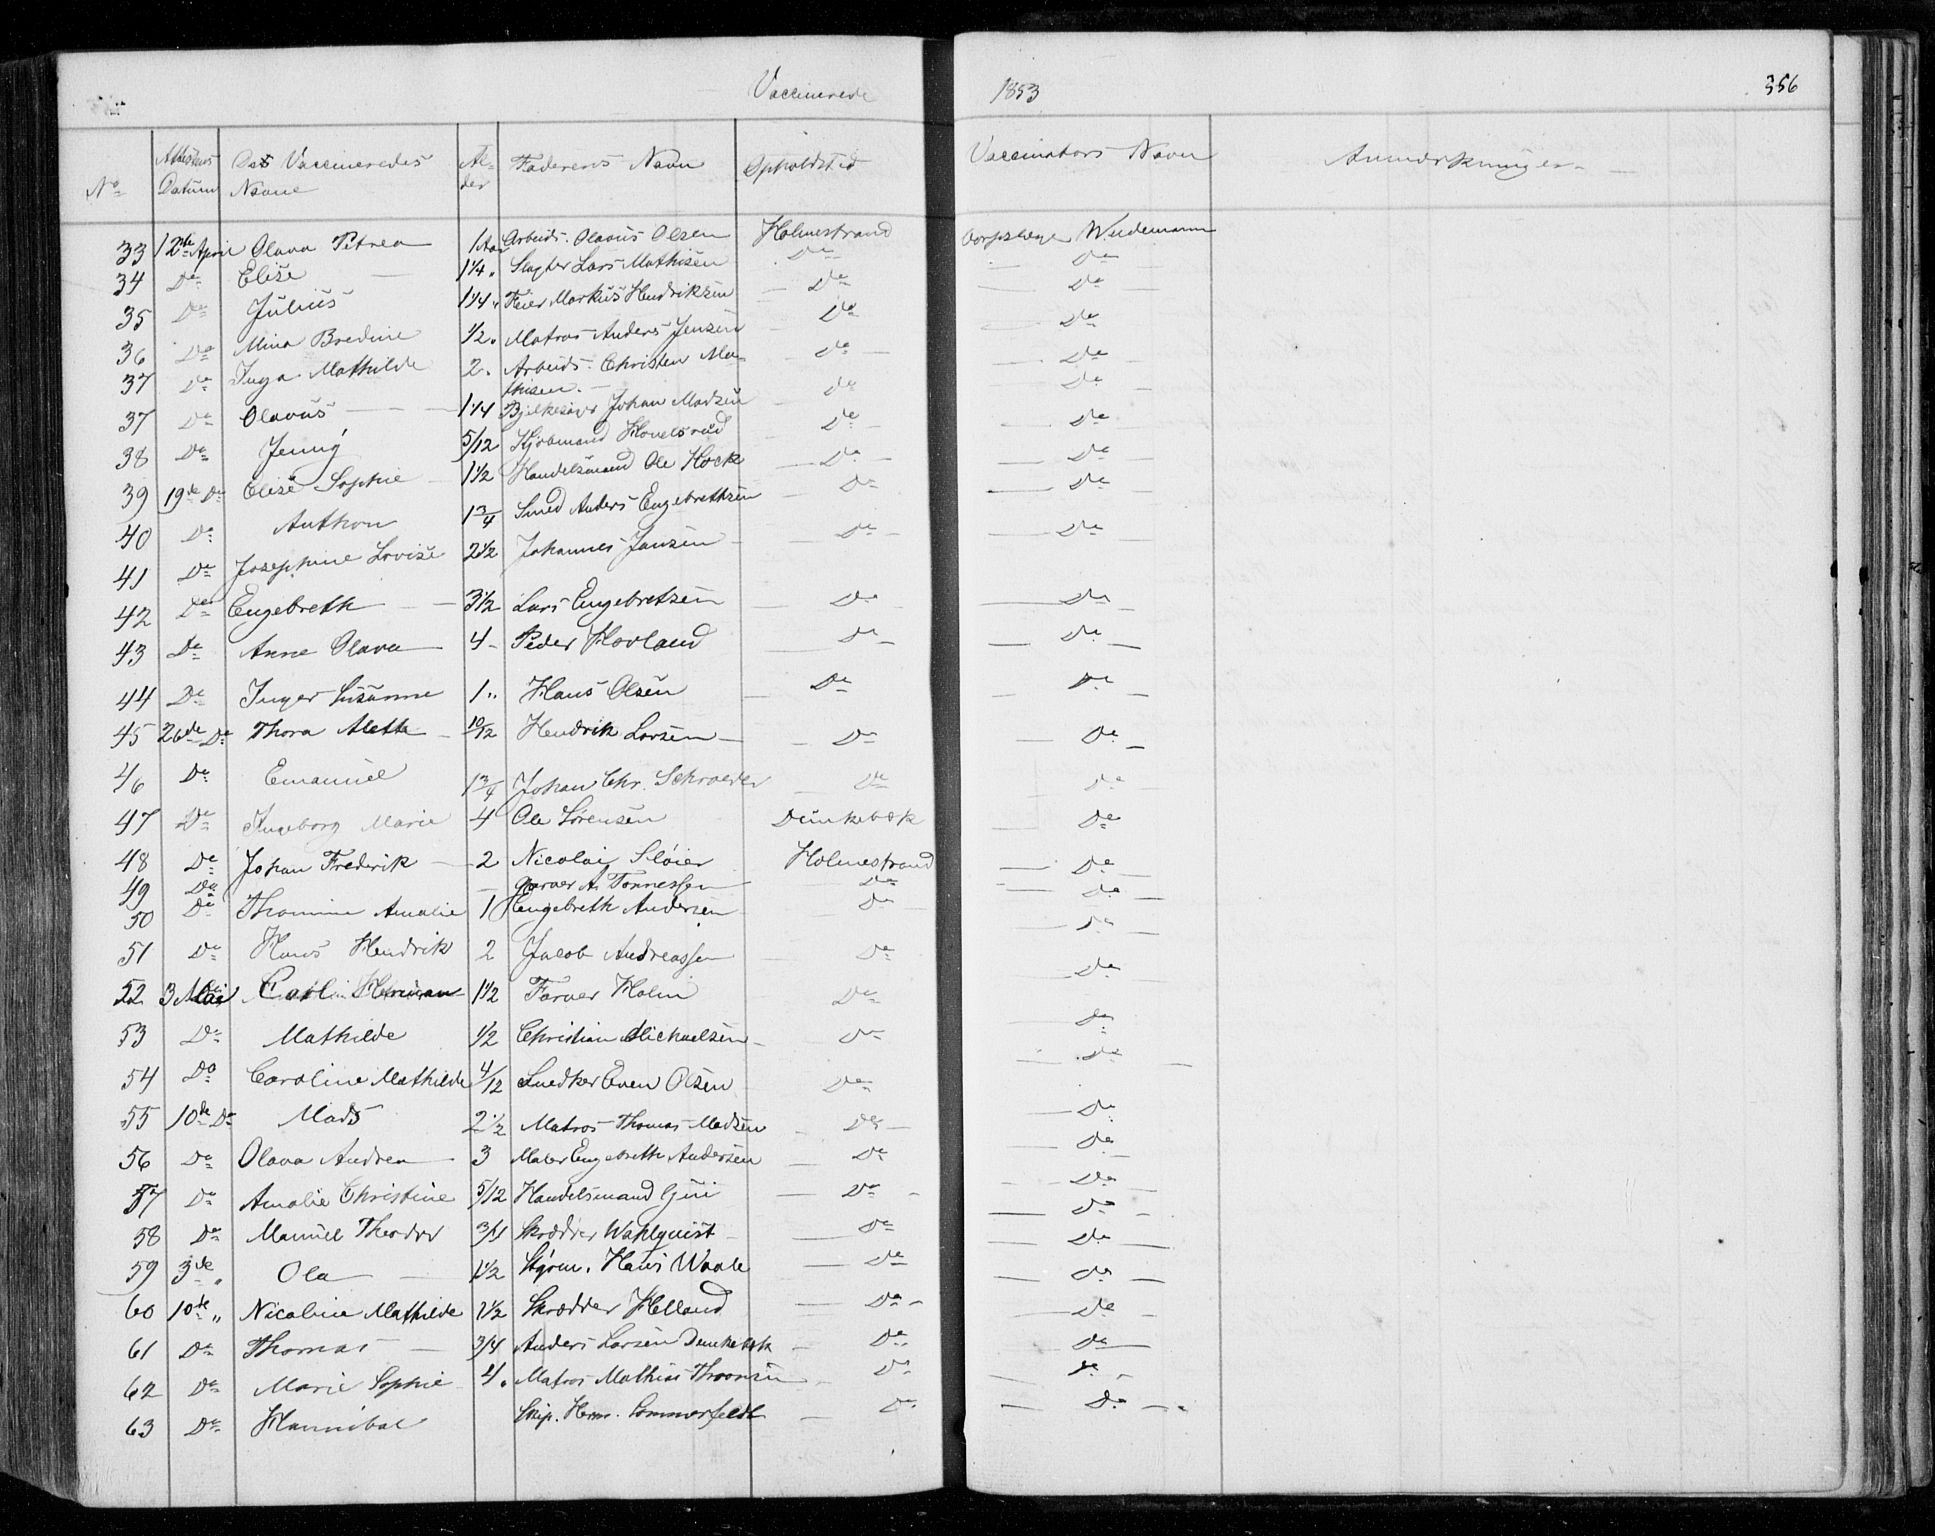 Vaccinerede 1853 356
No Attestens Datum Det Vaccineredes Navne Al- der Faderens Navn Opholdsted Vaccinators Navn Anmærkninger
33 12te April Olava Petrea 1 Aar Arbeids. Olavus Olsen Holmestrand Corpslæge Weidemann
34 Do Elise 1 1/4 " Slagter Lars Mathisen Do Do
35 Do Julius 1 1/4 " Feier Markus Hendriksen Do Do
36 Do Mina Bredine 1/2 " Matros Anders Jensen Do Do
37 Do Inga Mathilde 2 " Arbeids. Christen Ma- Do Do
thisen. Do
37 Do Olavus 1 1/4 Bjelkesager Johan Madsen Do Do
38 Do Jenny 5/12 Kjøbmand Hovelsrud Do Do
39 19de Do Elise Sophie 1 1/2 Handelsmand Ole Hock Do Do
40 Do Anthon 1 3/4 Smed Anders Engebrethsen Do Do
41 Do Josephine Lovise 2 1/2 Johannes Jansen Do Do
42 Do Engebreth 3 1/2 Lars Engebretsen Do Do
43 Do Anne Olava 4 - Peder Hovland Do Do
44 Do Inger Susanne 1 " Hans Olsen Do Do
45 26de Do Thora Aleth 10/12 Hendrik Larsen Do Do
46 Do Emanuel 1 3/4 Johan Chr. Schrøeder Do Do
47 Do Ingeborg Marie 4 Ole Sørensen Dunkebæk Do
48 Do Johan Frederik 2 Nicolai Sløier Holmestrand Do
49 Do - Garver A. Tønnessen Do Do
50 Do Thomine Amalie 1 Engebreth Andersen Do Do
51 Do Hans Hendrik 2 Jacob Andreassen Do Do
52 3 Mai Carl Herman 1 1/2 Farver Holm Do Do
53 Do Mathilde 1/2 Christian Michaelsen Do Do
54 Do Caroline Mathilde 4/12 Snedker Even Olsen Do Do
55 10de Do Mads 2 1/2 Matros Thomas Madsen Do Do
56 Do Olava Andrea 3 Maler Engebreth Andersen Do Do
57 Do Amalie Christine 5/12 Handelsmand Do Do
58 Do Manuel Theodor 3/4 Skrædder Wahlquist Do Do
59 3de " Ola 1 1/2 Styrm. Hans Waale Do Do
60 10de " Nicoline Mathilde 1 1/2 Skrædder Helland Do Do
61 Do Thomas 3/4 Anders Larsen Dunkebæk Do Do
62 Do Marie Sophie 4 " Matros Mathias Thoorsen Do Do
63 Do Hannibal Skip. Herm. Sommerfeldt Do Do